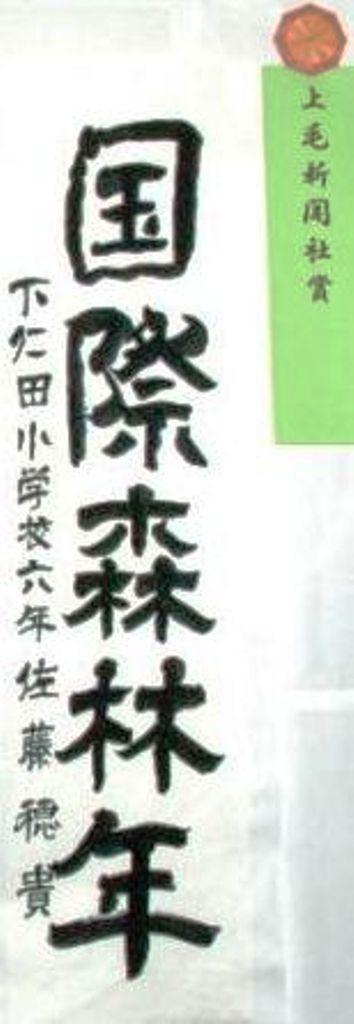 上毛新聞社賞
国際森林年
下仁田小学校六年佐藤穂貴